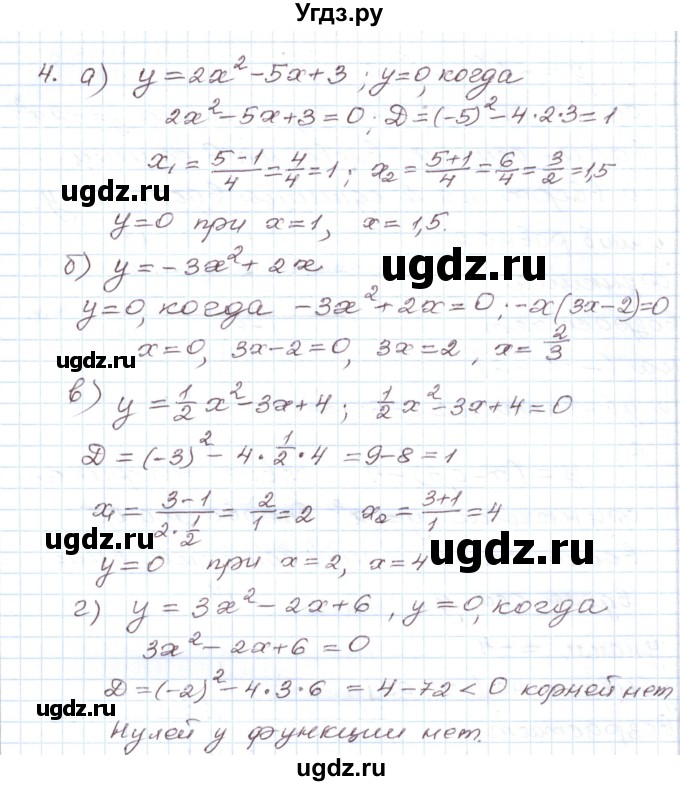 Угдз.ру
4. а) y = 2x² - 5x + 3 ; y = 0, когда
2x² - 5x + 3 = 0. Д = (-5)² - 4·2·3 = 1
x₁ = (5-1)/4 = 4/4 = 1 ; x₂ = (5+1)/4 = 6/4 = 3/2 = 1,5
ugdz.ru
y = 0 при x = 1, x = 1,5.
б) y = -3x² + 2x
ugdz.ru
y = 0, когда -3x² + 2x = 0 ; -x(3x-2) = 0
x = 0, 3x - 2 = 0, 3x = 2, x = 2/3
ugdz.ru
в) y = 1/2 x² - 3x + 4 ; 1/2 x² - 3x + 4 = 0
Д = (-3)² - 4·1/2·4 = 9 - 8 = 1
x₁ = (3-1)/(2·1/2) = 2/1 = 2 x₂ = (3+1)/1 = 4
ugdz.ru
ugdz.ru
y = 0 при x = 2, x = 4
г) y = 3x² - 2x + 6, y = 0, когда
3x² - 2x + 6 = 0
Д = (-2)² - 4·3·6 = 4 - 72 < 0 корней нет
ugdz.ru
Нулей у функции нет.
ugdz.ru